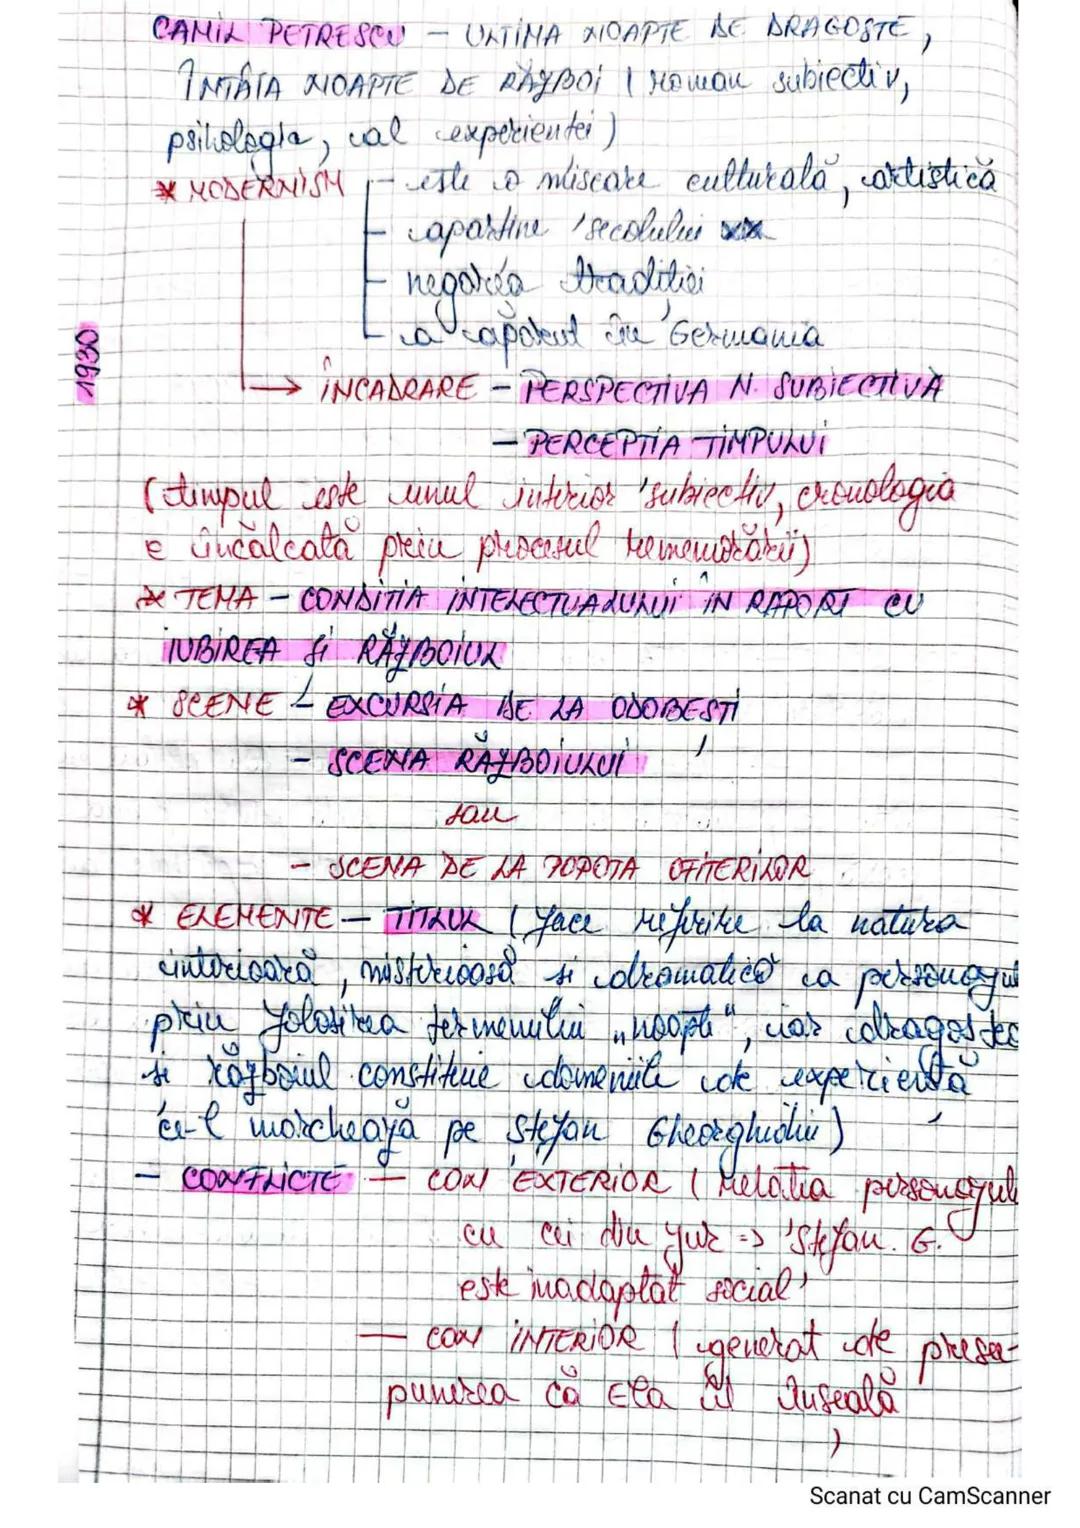 CAMIL PETRESCU - ULTIMA NOAPTE DE DRAGOSTE,
ÎNTÂIA NOAPTE DE RĂZBOI (roman subiectiv,
psihologic, al experienței)
* MODERNISM - este o mișcare culturală, artistică
- aparține secolului XX
- negarea tradiției
- a apărut în Germania
1930
ÎNCADRARE - PERSPECTIVA N. SUBIECTIVĂ
- PERCEPȚIA TIMPULUI
(timpul este unul interior subiectiv, cronologia
e încălcată prin procesul rememorării)
* TEMA - CONDIȚIA INTELECTUALULUI ÎN RAPORT CU
IUBIREA ȘI RĂZBOIUL
* SCENE - EXCURSIA DE LA ODOBEȘTI
- SCENA RĂZBOIULUI
sau
- SCENA DE LA POPOTA OFIȚERILOR
* ELEMENTE - TITLUL (face referire la natura
interioară, misterioasă și dramatică a personajul
prin folosirea termenului „noapte", iar dragostea
și războiul constituie domeniile de experiență
ce-l marchează pe Ștefan Gheorghidiu)
- CONFLICTE - CON EXTERIOR (relația personajul
cu cei din jur => Ștefan. G.
este inadaptat social)
- CON INTERIOR (generat de presu-
punerea că Ela îl înșeală
)
Scanat cu CamScanner